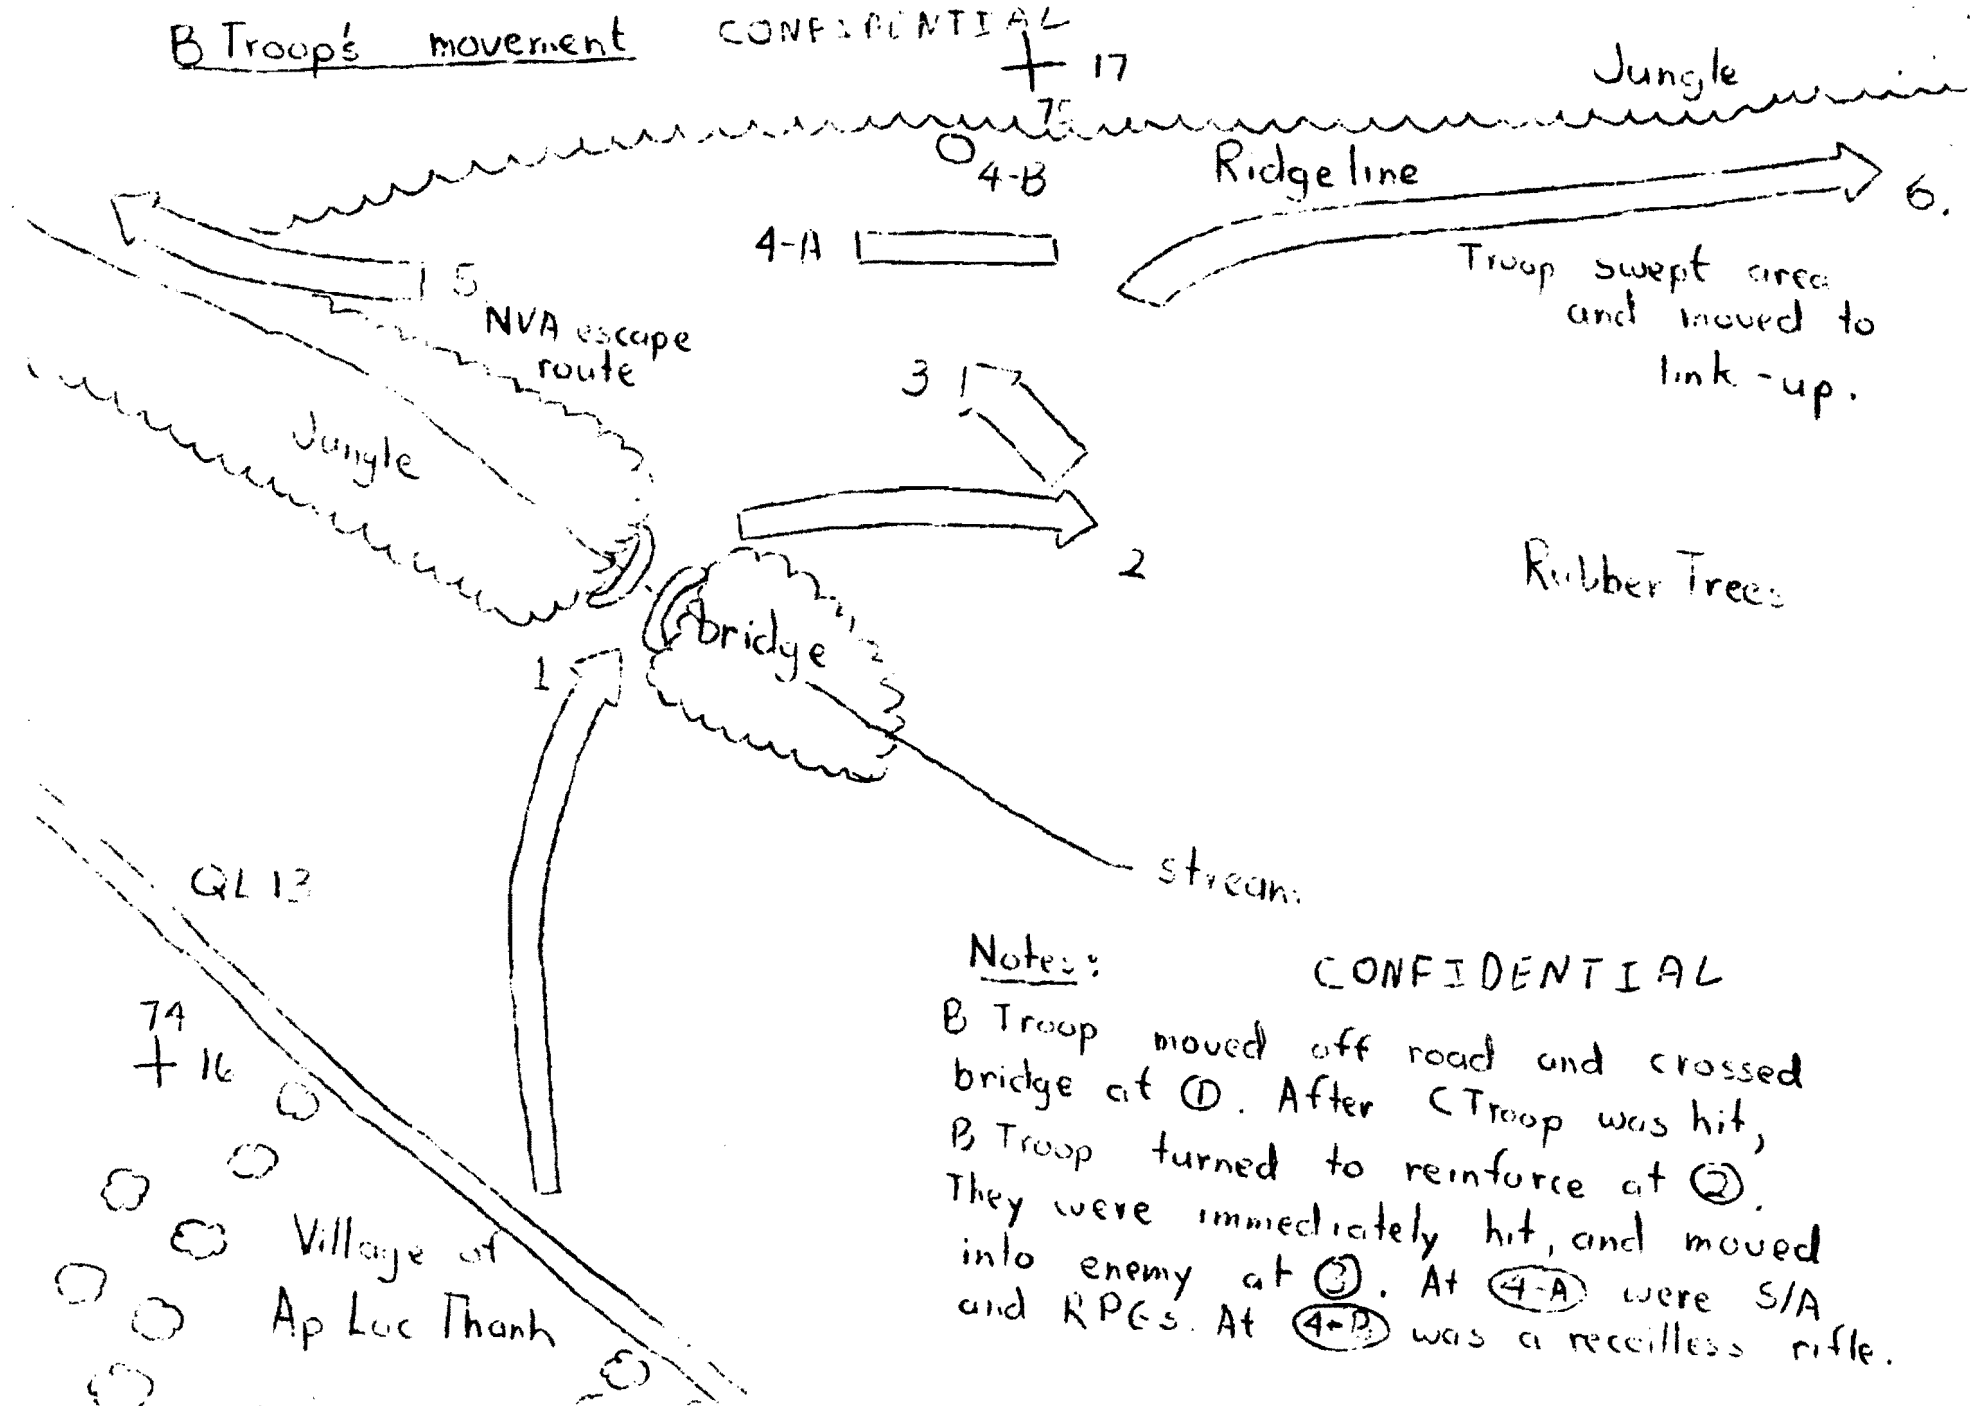 B Troop's movement CONFIDENTIAL
17
75
Jungle
4-B
Ridgeline
6.
4-A
Troop swept area
and moved to
link-up.
5
NVA escape
route
3
Jungle
2
Rubber Trees
bridge
1
stream
QL 13
74
16
Village of
Ap Luc Thanh
Notes:
CONFIDENTIAL
B Troop moved off road and crossed
bridge at ①. After C Troop was hit,
B Troop turned to reinforce at ②.
They were immediately hit, and moved
into enemy at ③. At 4-A were S/A
and RPGs. At 4-B was a recoilless rifle.